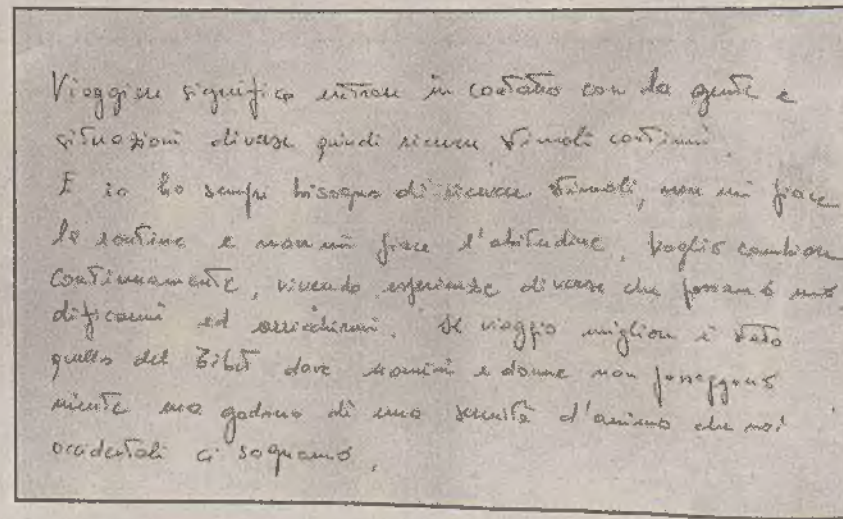 Viaggiare significa entrare in contatto con la gente e
situazioni diverse quindi ricevere stimoli continui.
E io ho sempre bisogno di ricevere stimoli, non mi piace
la routine e non mi piace l'abitudine, voglio cambiare
continuamente, vivendo esperienze diverse che possano mo
dificarmi ed arricchirmi. Il viaggio migliore è stato
quello del Tibet dove uomini e donne non posseggono
niente ma godono di una serenità d'animo che noi
occidentali ci sogniamo.